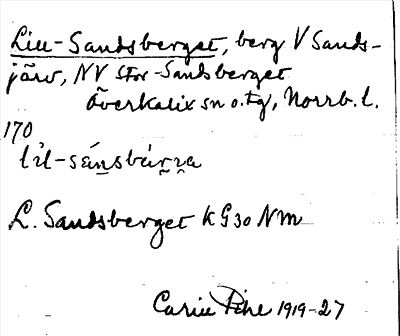 Lill-Sandsberget, berg V Sands-
järv, NV Stor-Sandsberget
Överkalix sn o. tg, Norrb. l.
170
lìl-sánsbárra
L. Sandsberget KG30 Nm
Carin Pihl 1919-27